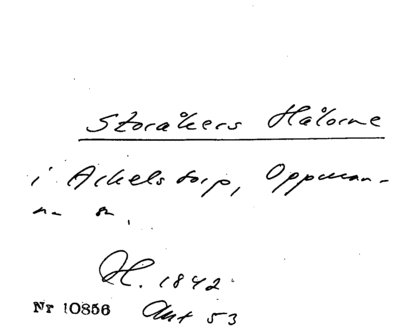 Storåkers Hålorne
i Arkelstorp, Oppman-
na sn.
H. 1842
Nr 10856 Ant 53